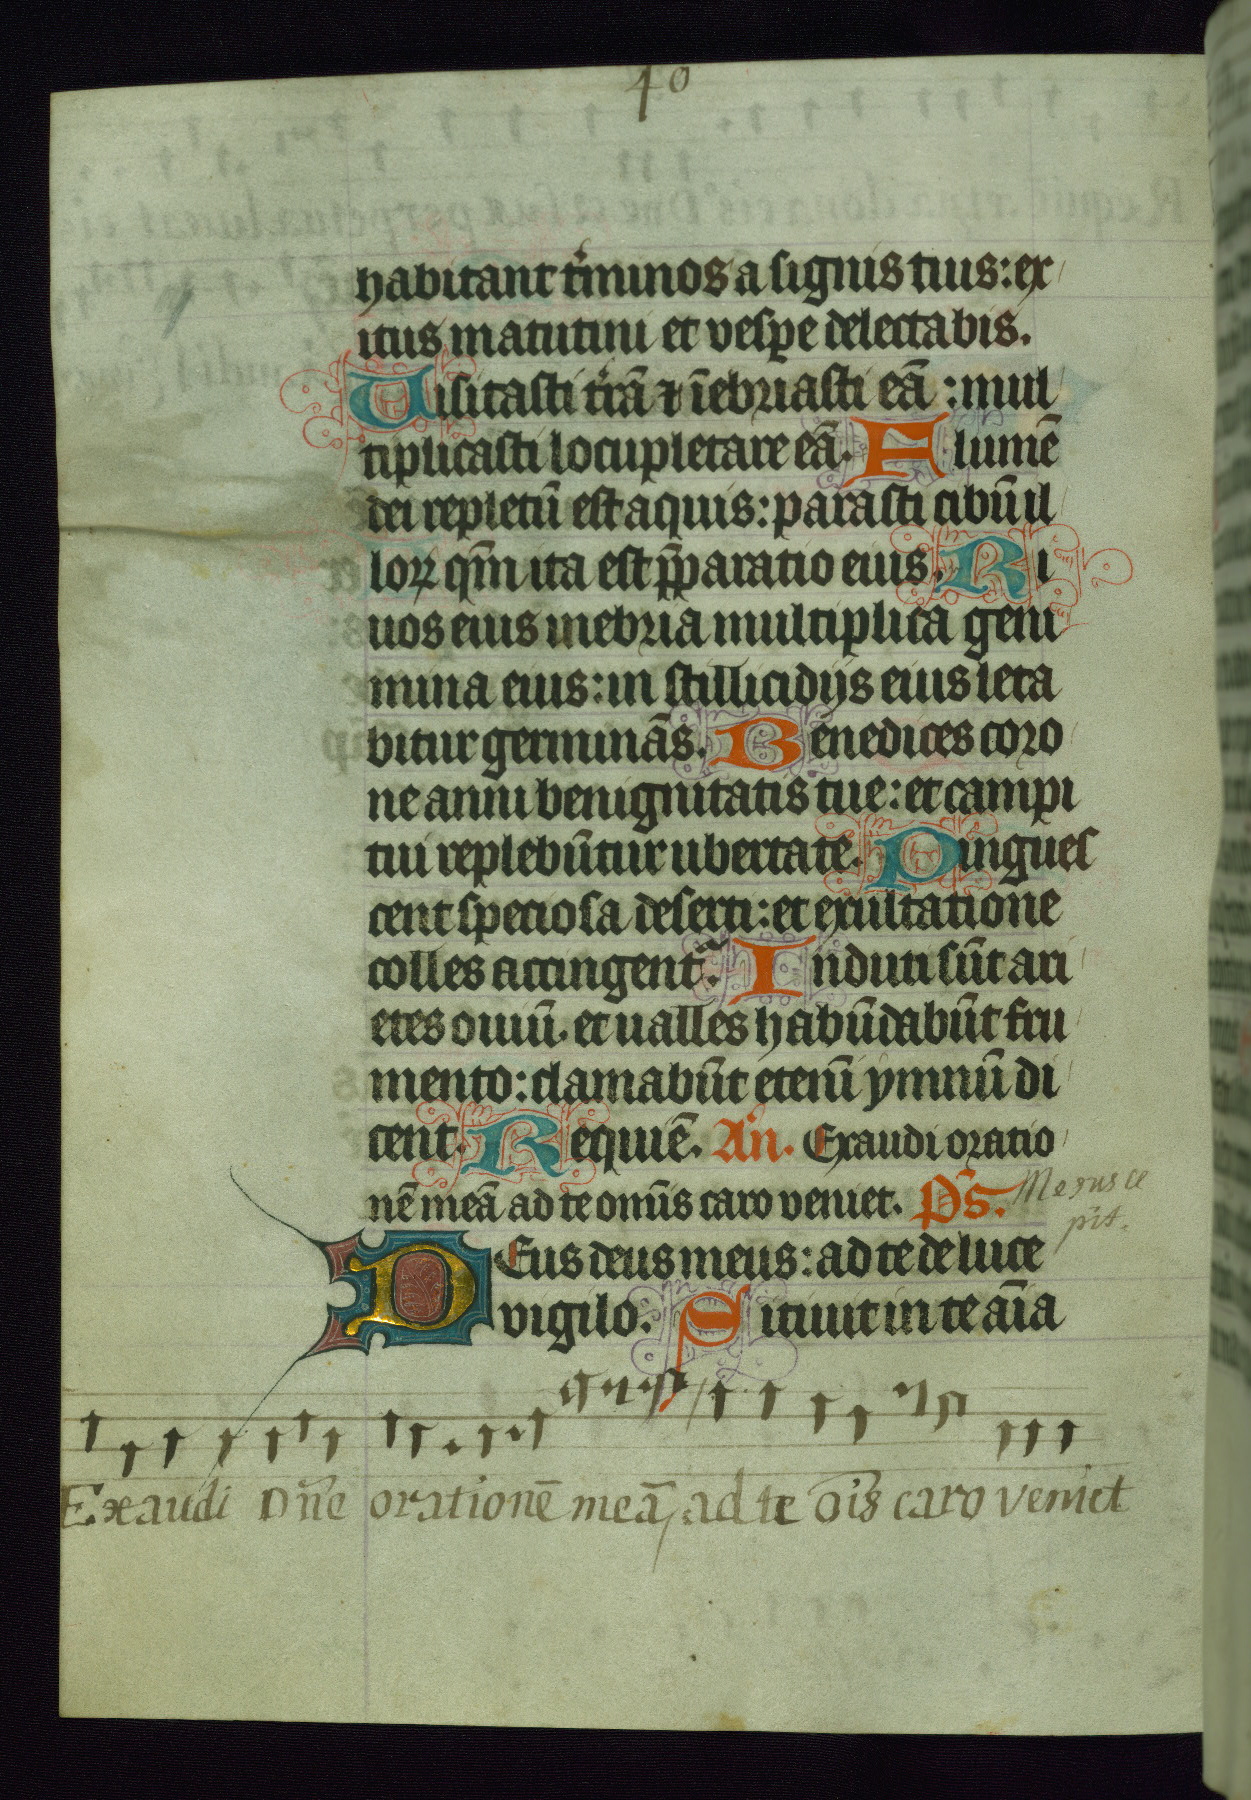 40
habitant t'minos a signis tuis: ex
itus matutini et vespe delectabis.
Uisitasti t'rā ⁊ īebriasti eā: mul
tiplicasti locupletare eā. Flumē
dei repletū est aquis: parasti cibū il
loꝝ qm̄ ita est p̄paratio eius. Ri
uos eius inebria multiplica geni
mina eius: in stillicidijs eius leta
bitur germinās. Benedices coro
ne anni benignitatis tue: et campi
tui replebūtur ubertate. Pingues
cent speciosa deserti: et exultatione
colles accingent'. Induti sūt ari
etes ouiū. et ualles habūdabūt fru
mento: clamabūt etenī ymnū di
cent. Requiē. An. Exaudi oratio
nē meā ad te omīs caro veniet. Ps. Me susce
pit.
Deus deus meus: ad te de luce
vigilo. Sitiuit in te aīa
Exaudi Dn̄e orationē meā, ad te oīs caro veniet